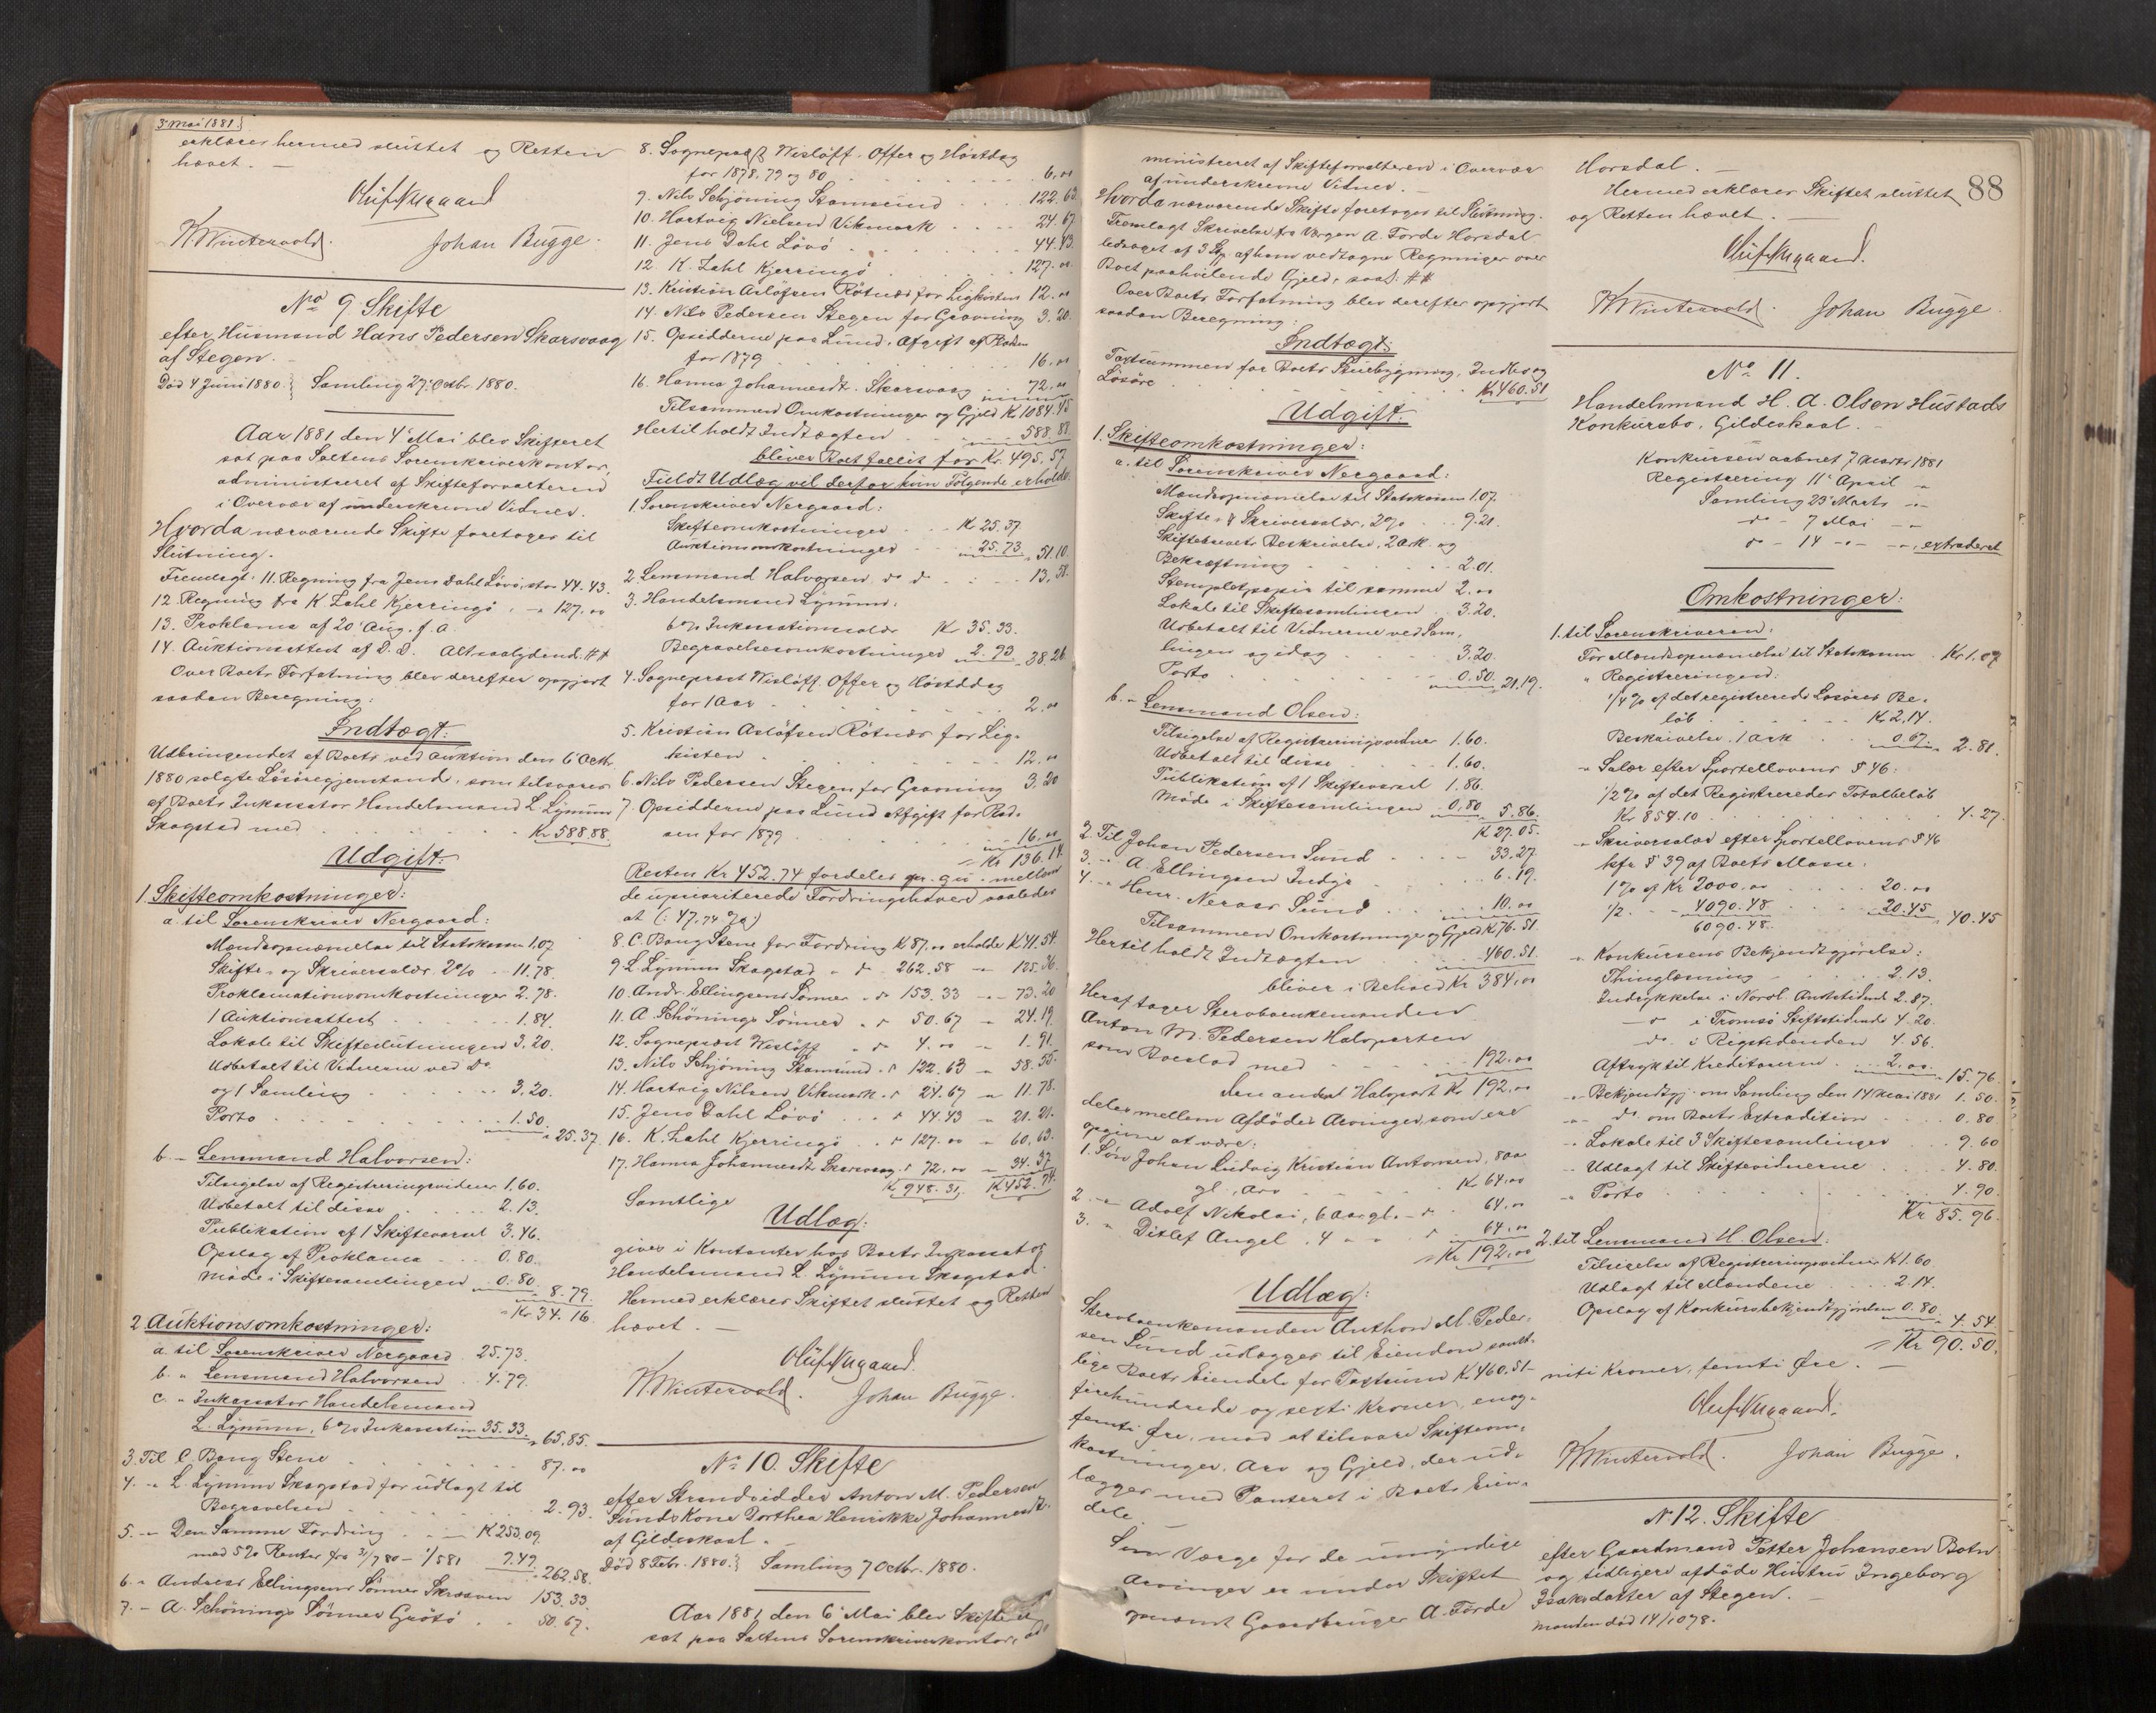 3 Mai 1881.
erklæres hermed sluttet og Retten
hævet. —
Oluf Nergaard
K. Wintervold. Johan Bugge.
No 9 Skifte
efter Husmand Hans Pedersen Skarsvaag
af Stegen.
Død 4 Juni 1880. Samling 27 Octbr. 1880.
Aar 1881 den 4 Mai blev Skifteret
sat paa Saltens Sorenskriverkontor,
administreret af Skifteforvalteren
i Overvær af underskrevne Vidner.
Hvorda nærværende Skifte foretoges til
Slutning.
Fremlagt: 11. Regning fra Jens Dahl Løvø, stor 44.43.
12. Regning fra K Zahl Kjerringø, - 127,00
13. Proklama af 20 Aug. f. a.
14. Auktionsattest af D. D. Altsaalydende ##
Over Boets Forfatning blev derefter opgjort
saadan Beregning:
Indtægt:
Udbringendet af Boets ved Auktion den 6 Octb.
1880 solgte Løsøregjenstande, som tilsvares
af Boets Inkassator Handelsmand L. Lynum
Skagstad med Kr 588.88.
Udgift:
1. Skifteomkostninger:
a. til Sorenskriver Nergaard:
Mandsopnævnelse til Statskassen 1.07
Skifte- og Skriversalær 2% 11.78.
Proklamationsomkostninger 2.78.
1 Auktionsattest 1.84.
Lokale til Skifteslutningen 3.20.
Udbetalt til Vidnerne ved Do
og 1 Samling 3.20.
Porto 1.50. 25.37.
b. - Lensmand Halvorsen:
Tilsigelse af Registreringsvidner 1.60.
Udbetalt til disse 2.13.
Publikation af 1 Skiftevarsel 3.46.
Opslag af Proklama 0.80.
Møde i Skiftesamlingen 0.80. 8.79.
Kr. 34.16.
2. Auktionsomkostninger:
a. til Sorenskriver Nergaard 25.73.
b. " Lensmand Halvorsen 4.79.
c. " Inkassator Handelsmand
L. Lynum, 6% Inkassation 35.33. 65.85.
3. Til C. Bang Stene 87.00
4. - L Lynum Skagstad for udlagt til
Begravelsen 2.93.
5. - Den Samme Fordring K 253.09
med 5% Renter fra 31/7 80 - 4/5 81 9.49. 262.58.
6. - Andreas Ellingsens Sønner Skraaven 153.33.
7. - A. Schönings Sønner Grøtø 50.67.
8. Sognepræst Wisløff. Offer og Høstdag
for 1878, 79 og 80 6,00
9. Nils Schjøning Stamsund 122.63
10. Hartvig Nielsen Vikmark 24.67
11. Jens Dahl Løvø 44.43.
12. K. Zahl Kjerringø 127.00
13. Kristian Asløfsen Røtnes for Ligkisten 12.00
14. Nils Pedersen Stegen for Gravning 3.20.
15. Opsidderne paa Lund, Afgift af Pladsen
for 1879 16.00
16. Hanna Johannesdt. Skarsvaag 72,00
Tilsammen Omkostninger og Gjeld Kr 1084.45
Hertil holdt Indtægten 588.88.
bliver Boet fallit for Kr. 495.57
Fuldt Udlæg vil derfor kun Følgende erholde:
1. Sorenskriver Nergaard:
Skifteomkostninger Kr 25.37.
Auktionsomkostninger 25.73. 51.10.
2 Lensmand Halvorsen do do 13.58.
3. Handelsmand Lynum:
6% Inkassationssalær Kr 35.33.
Begravelsesomkostninger 2.93 38.26
4. Sognepræst Wisløff. Offer og Høstdag
for 1 Aar 2.00
5. Kristian Asløfsen Røtnes for Lig-
kisten 12.00
6. Nils Pedersen Stegen for Gravning 3.20
7. Opsidderne paa Lund Afgift for Plad-
sen for 1879 16.00
Kr 136.14
Resten Kr 452.74 fordeles mellem
de uprioriterede Fordringshavere saaledes
at (: 47,74 %:)
8. C. Bang Stene for Fordring K 87,00 erholder K 41.54.
9. L Lynum Skagstad - do 262.58 - 125.36.
10. Andr. Ellingsens Sønner - do 153.33 - 73.20
11. A. Schönings Sønner - do 50.67 - 24.19.
12. Sognepræst Wisløff - do 4.00 - 1.91.
13. Nils Schjøning Stamsund - do 122.63 - 58.55.
14. Hartvig Nilsen Vikmark - do 24.67 - 11.78.
15. Jens Dahl Løvø - do 44.43 - 21.21.
16. K. Zahl Kjerringø - do 127.00 - 60.63.
17. Hanna Johannesdt Skarsvaag - do 72.00 - 34.37
Kr 948.31, K 452.74.
Samtlige
Udlæg:
gives i Kontanter hos Boets Inkassator
Handelsmand L. Lynum Skagstad.
Hermed erklæres Skiftet sluttet og Retten
hævet. —
Oluf Nergaard.
K. Wintervold. Johan Bugge.
No 10. Skifte
efter Strandsidder Anton M. Pedersen
Sunds Kone Dorthea Henrikke Johannesdt.
af Gildeskaal.
Død 8 Febr. 1880. Samling 7 Octbr. 1880.
Aar 1881 den 6 Mai blev Skifteret
sat paa Saltens Sorenskriverkontor, ad-
ministreret af Skifteforvalteren i Overvær
af underskrevne Vidner. —
Hvorda nærværende Skifte foretoges til Slutning.
Fremlagt Skrivelse fra Værgen A. Førde Horsdal
ledsaget af 3 Stp. af ham vedtagne Regninger over
Boet paahvilende Gjeld, saal. ##
Over Boets Forfatning blev derefter opgjort
saadan Beregning:
Indtægt:
Taxtsummen for Boets Stuebygning, Indbo og
Løsøre Kr 460.51
Udgift:
1. Skifteomkostninger:
a. til Sorenskriver Nergaard:
Mandsopnævnelse til Statskassen 1.07.
Skifte- & Skriversalær, 2% 9.21.
Skiftebrevets Beskrivelse, 2 Ark. og
Bekræftning 2.01.
Stempletpapir til samme 2.00
Lokale til Skiftesamlingen 3.20.
Udbetalt til Vidnerne ved Sam-
lingen og idag 3.20.
Porto 0.50. 21.19.
b. - Lensmand Olsen:
Tilsigelse af Registreringsvidner 1.60.
Udbetalt til disse 1.60.
Publikation af 1 Skiftevarsel 1.86.
Møde i Skiftesamlingen 0.80 5.86.
K 27.05.
2 Til Johan Pedersen Sund 33.27.
3. - A. Ellingsen Indyr 6.19.
4. - Henr. Neraas Sund 10.00
Tilsammen Omkostninger og Gjeld K 76.51.
Hertil holdt Indtægten 460.51.
bliver i Behold Kr 384,00
Heraf tager Stervboenkemanden
Anton M. Pedersen Halvparten
som Boeslod med 192.00
den anden Halvpart Kr 192.00
deles mellem Afdødes Arvinger, som ere
opgivne at være:
1. Søn Johan Ludvig Kristian Antonsen, 8 aar
gl., Arv Kr 64.00
2 - Adolf Nikolai, 6 aar gl. - do 64.00
3. " Ditlef Angel, 4 - - do 64.00
Kr 192.00
Udlæg:
Stervboenkemanden Anthon M. Peder-
sen Sund udlægges til Eiendom samt-
lige Boets Eiendele for Taxtsum K 460.51 -
firehundrede og sexti Kroner, enog-
femti Øre, mod at tilsvare Skifteom-
kostninger, Arv og Gjeld, der ud-
lægges med Panteret i Boets Eien-
dele. —
Som Værge for de umyndige
Arvinger er under Skiftet
opnævnt Gaardbruger A. Førde
Horsdal. —
Hermed erklæres Skiftet sluttet
og Retten hævet. —
88
Oluf Nergaard.
K. Wintervold. Johan Bugge.
No 11.
Handelsmand H. A. Olsen Hustads
Konkursbo, Gildeskaal. —
Konkursen aabnet 7 Marts 1881
Registrering 11 April "
Samling 23 Marts "
do - 7 Mai "
do - 14 " ", extraderet
Omkostninger:
1. til Sorenskriveren:
For Mandsopnævnelse til Statskassen Kr 1.07
" Registreringen:
1/4 % af det registrerede Løsøres Be-
løb K 2.14.
Beskrivelse, 1 ark 0.67. 2.81.
" Salær efter Sportellovens § 46:
1/2 % af det Registreredes Totalbeløb
Kr 854.10 4.27.
" Skriversalær efter Sportellovens § 46
kfr. § 39 af Boets Masse:
1 % af Kr 2000.00 20.00
1/2 - - 4090.48 20.45 40.45
6090.48.
" Konkursens Bekjendtgjørelse:
Thinglæsning 2.13.
Indrykkelse i Nordl. Amtstidende 2.87.
- do i Tromsø Stiftstidende 4.20.
do. i Rigstidenden 4.56.
Aftryk til Kreditorerne 2.00. 15.76.
" Bekjendtgj. om Samling den 14 Mai 1881 1.50.
" do om Boets Extradition 0.80
" Lokale til 3 Skiftesamlinger 9.60
" Udlagt til Skiftevidnerne 4.80.
" Porto 4.90.
Kr 85.96.
2. til Lensmand H. Olsen:
Tilsigelse af Registreringsvidner K 1.60
Udlagt til Mændene 2.14.
Opslag af Konkursbekjendtgjørelsen 0.80. 4.54
Kr 90.50.
niti Kroner, femti Øre. —
Oluf Nergaard.
K. Wintervold. Johan Bugge.
No 12. Skifte
efter Gaardmand Petter Johansen Botn
og tidligere afdøde Hustru Ingeborg
Isaksdatter af Stegen. —
Manden død 14/10 78.